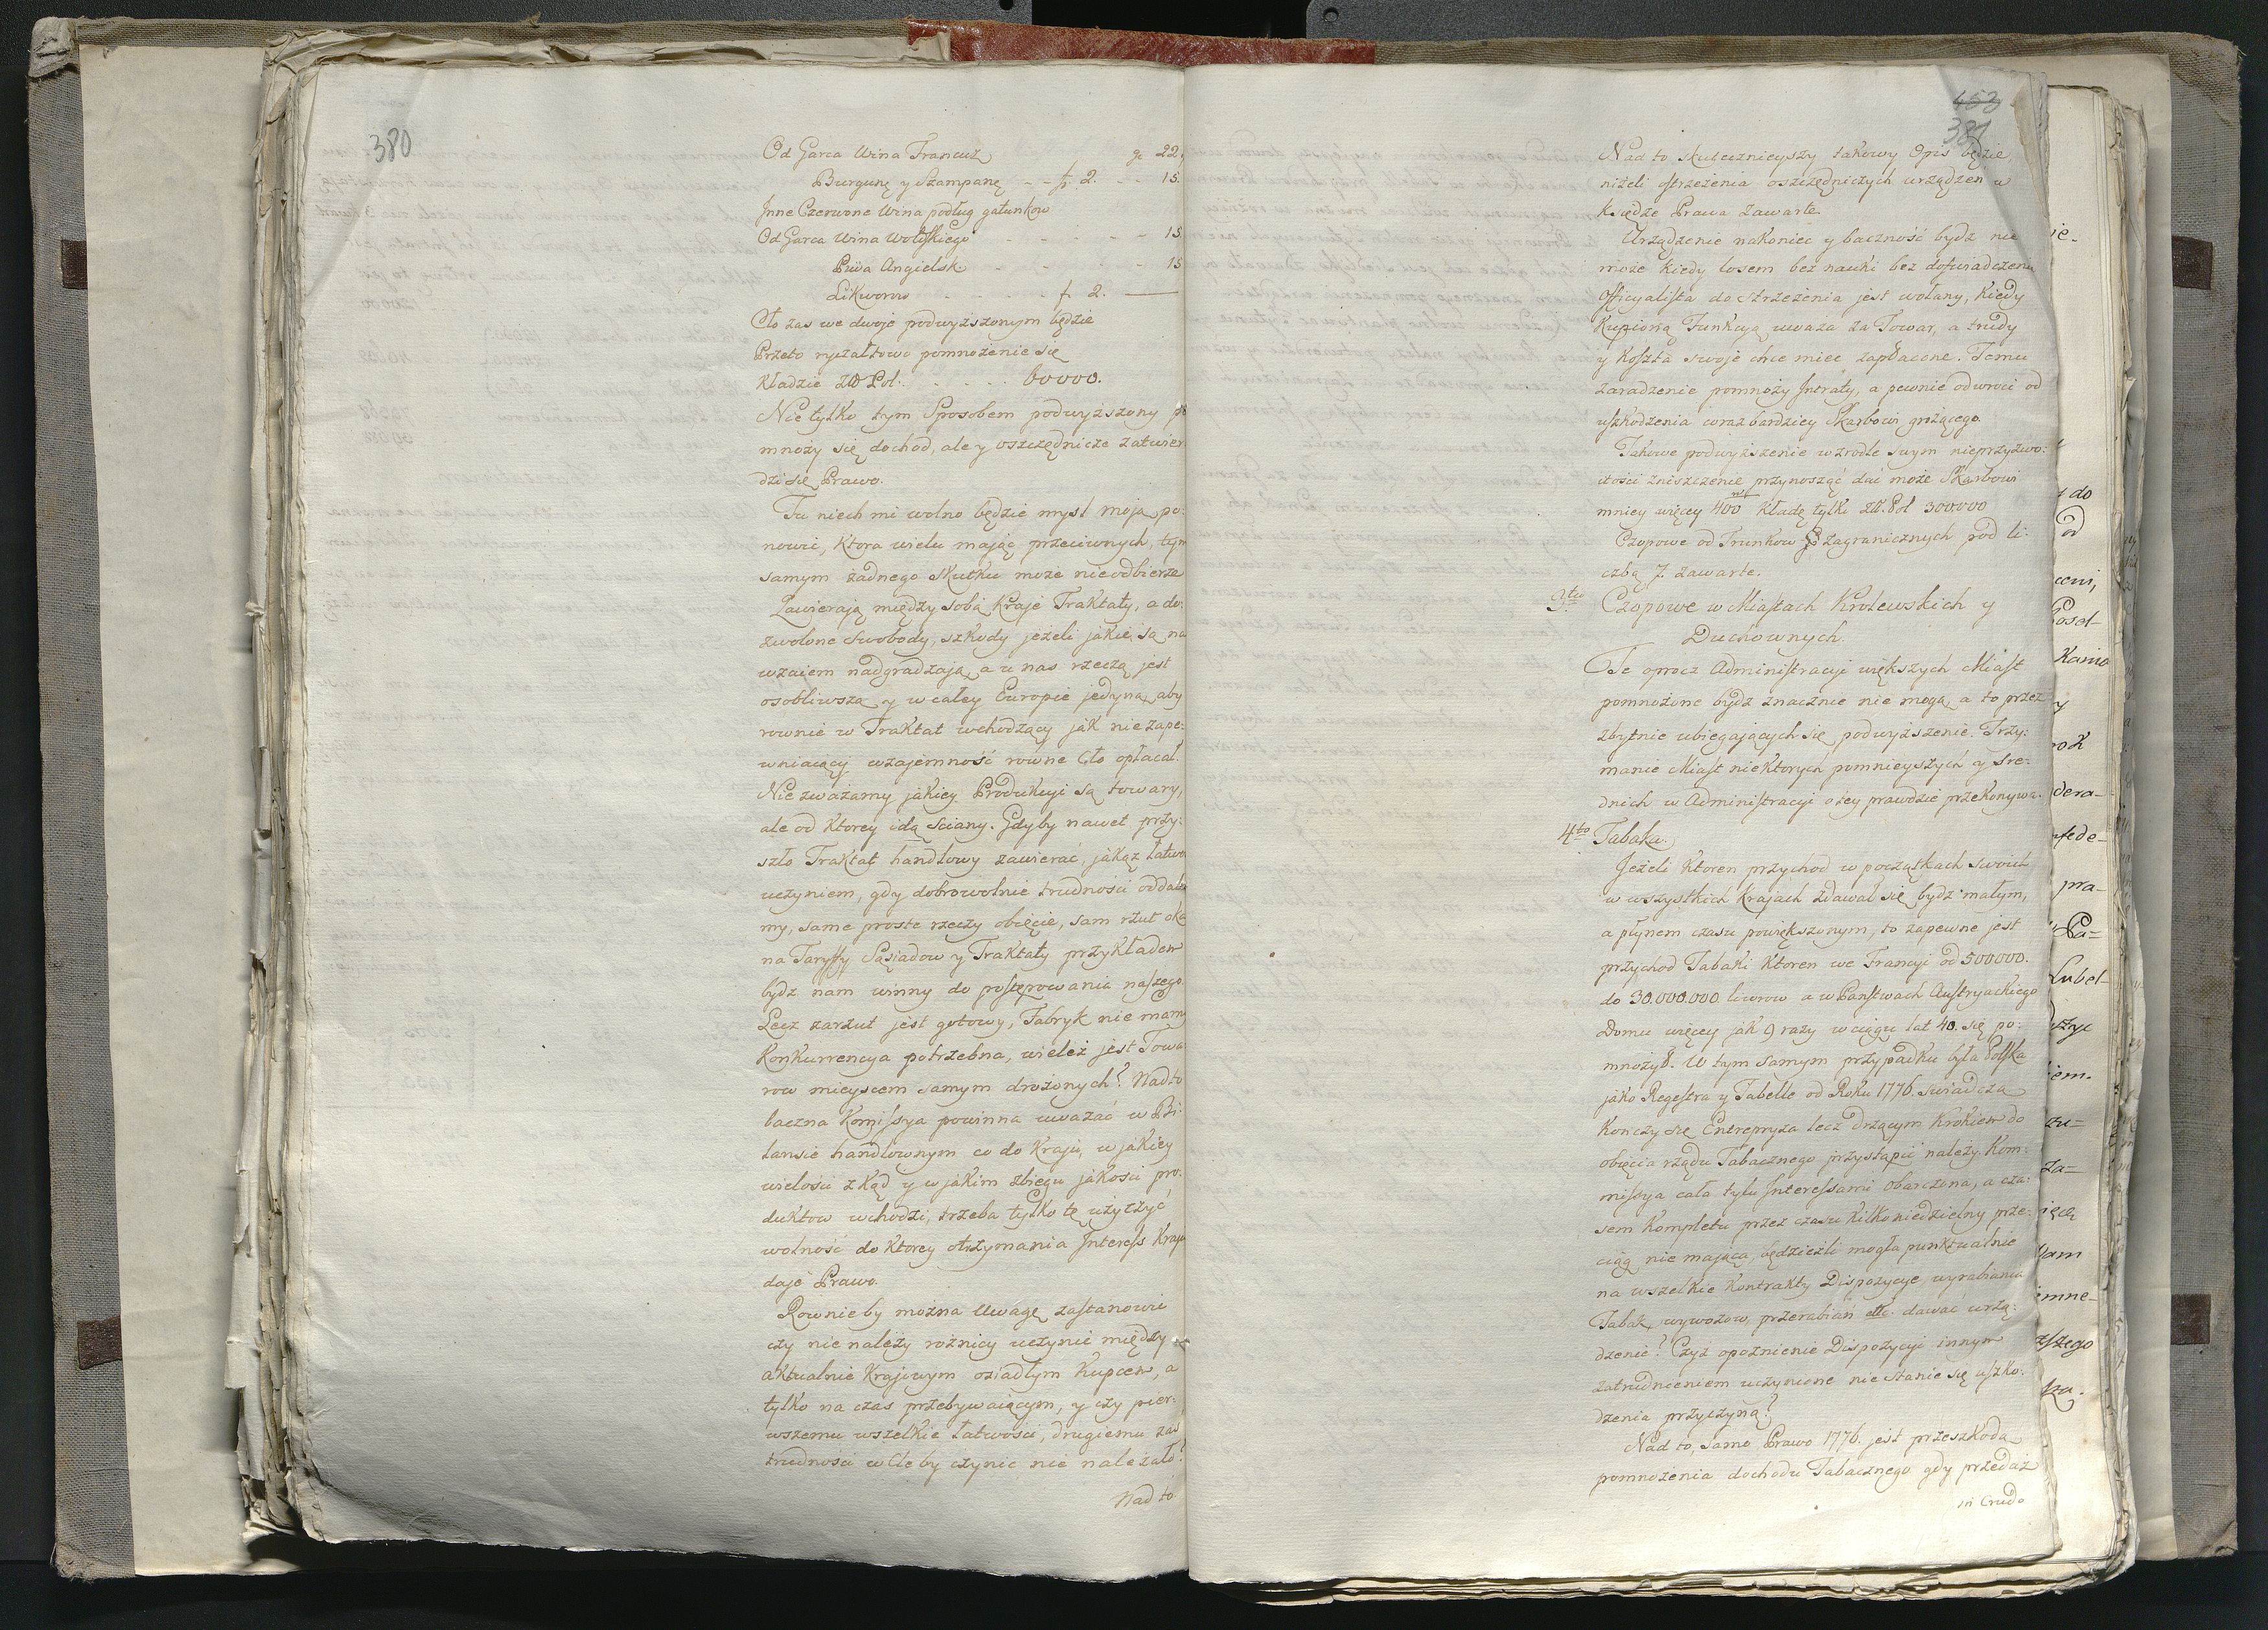 380
Od Garca Wina Francuz g 22.
Burgunę y Szampanę - - f. 2. - - 15.
Jnne Czerwone Wina podług gatunkow
Od Garca Wina Wołoſkiego - - - - - 15
Piwa Angielsk - - - - 15
Likworow - - - - f. 2. —
Cło zas we dwoje podwyzszonym będzie
Przeto ryczałtowo pomnozenie się
Kładzie Zł Pol: - - - - 60000.
Nie tylko tym Sposobem podwyzszony po
mnozy się dochod, ale y oszczędnicze zatwier
dzi się Prawo.
Tu niech mi wolno będzie mysl moją po:
nowić, Ktora wielu mając przeciwnych, tym
samym żadnego skutku może nieodbierze
Zawierają między sobą Kraje Traktaty, a do:
zwolone swobody, szkody jeżeli jakie są na
wzaiem nadgradzają, a u nas rzeczą jest
osobliwszą y w całey Europie jedyną, aby
rownie w Traktat wchodzący jak nie zape:
wniaiący wzajemność rowne Cło opłacał.
Nie zwazamy jakiey Produkcyi są towary,
ale od Ktorey idą sciany. Gdyby nawet przy:
szło Traktat handlowy zawierać, jakąz łatwo
uczyniem, gdy dobrowolnie trudności oddala
my, same proste rzeczy obięcie, sam rzut oka
na Taryffy Sąsiadow y Traktaty przykładem
bydz nam winny do poſtępowania naſzego.
Lecz zarzut jest gotowy, Fabryk nie mamy
Konkurrencya potrzebna, wieleż jest Towa
row mieyscem samym drożonych? Nadto
baczna Komiſsya powinna uważać w Bi:
lansie handlownym co do Kraju, w jakiey
wielosci zkąd y w jakim zbiegu jakosci pro:
duktow wchodzi, trzeba tylko tę użyczyć
wolność do Ktorey otrzymania Jntereſs Kraju
daje Prawo.
Rownieby można Uwagę zaſtanowić
czy nie należy rożnicy uczynić między
aktualnie Krajowym osiadłym Kupcem, a
tylko na czas przebywaiącym, y czy pier:
wszemu wszelkie łatwości, drugiemu zaś
trudności w Cle by czynic nie należało?
Nad to
453
381
Nad to skutecznieyszy takowy Opis będzie
niżeli ſtrzeżenia oszczędniczych urządzen w
księdze Prawa zawarte.
Urządzenie nakoniec y baczność bydz nie
może kiedy losem bez nauki bez doſwiadczenia
Officyaliſta do strzeżenia jest wołany, Kiedy
Kupioną Funkcyą uważa za Towar, a trudy
y Koſzta swoje chce miec zapłacone. Temu
zaradzenie pomnoży Jntraty, a pewnie odwroci od
uſzkodzenia coraz bardziey Skarbowi grożącego.
Takowe podwyższenie w zrodle swym nieprzyzwo:
itości zniszczenie przynosząć dać może Skarbowi
mniey więcey 400 m/ Kładę tylko Zł. Pol 300000
Czopowe od Trunkow zagranicznych pod li:
czbą 7. zawarte.
3tio Czopowe w Miaſtach Krolewskich y
Duchownych.
Te oprocz Adminiſtracyi większych Miaſt
pomnożone bydz znacznie nie mogą, a to przez
zbytnie ubiegających się podwyższenie. Trzy:
manie Miaſt niektorych pomnieyszych y sre:
dnich w Adminiſtracyi o tey prawdzie przekonywa.
4to Tabaka.
Jeżeli Ktoren przychod w początkach swoich
w wszystkich Krajach zdawał się bydz małym,
a płynem czasu powiększonym, to zapewne jest
przychod Tabaki Ktoren we Francyi od 500000.
do 30.000.000 liwrow a w Panſtwach Auſtryackiego
Domu więcey jak 9 razy w ciągu lat 40. się po:
mnożył. W tym samym przypadku była Polſka
jako Regeſtra y Tabelle od Roku 1776. swiadczą
Konczy się Entrepryza lecz drżącym Krokiem do
obięcia rządu Tabacznego przystąpić należy. Kom:
miſsya cała tylu Jntereſsami Obarczona, a cza:
sem Kompletu przez czasu Kilkoniedzielny prze:
ciąg nie mająca, będzieżli mogła punktualnie
na wszelkie Kontrakty Dispozycye wyrabiania
Tabak, wywozow, przerabian etc. dawać urzą:
dzenie? Czyż opoznienie Dispozycyi innym
zatrudnieniem uczynione nie stanie się uſzko:
dzenia przyczyną?
Nad to, samo Prawo 1776. jest przeszkodą
pomnożenia dochodu Tabacznego gdy przedaż
in Crudo